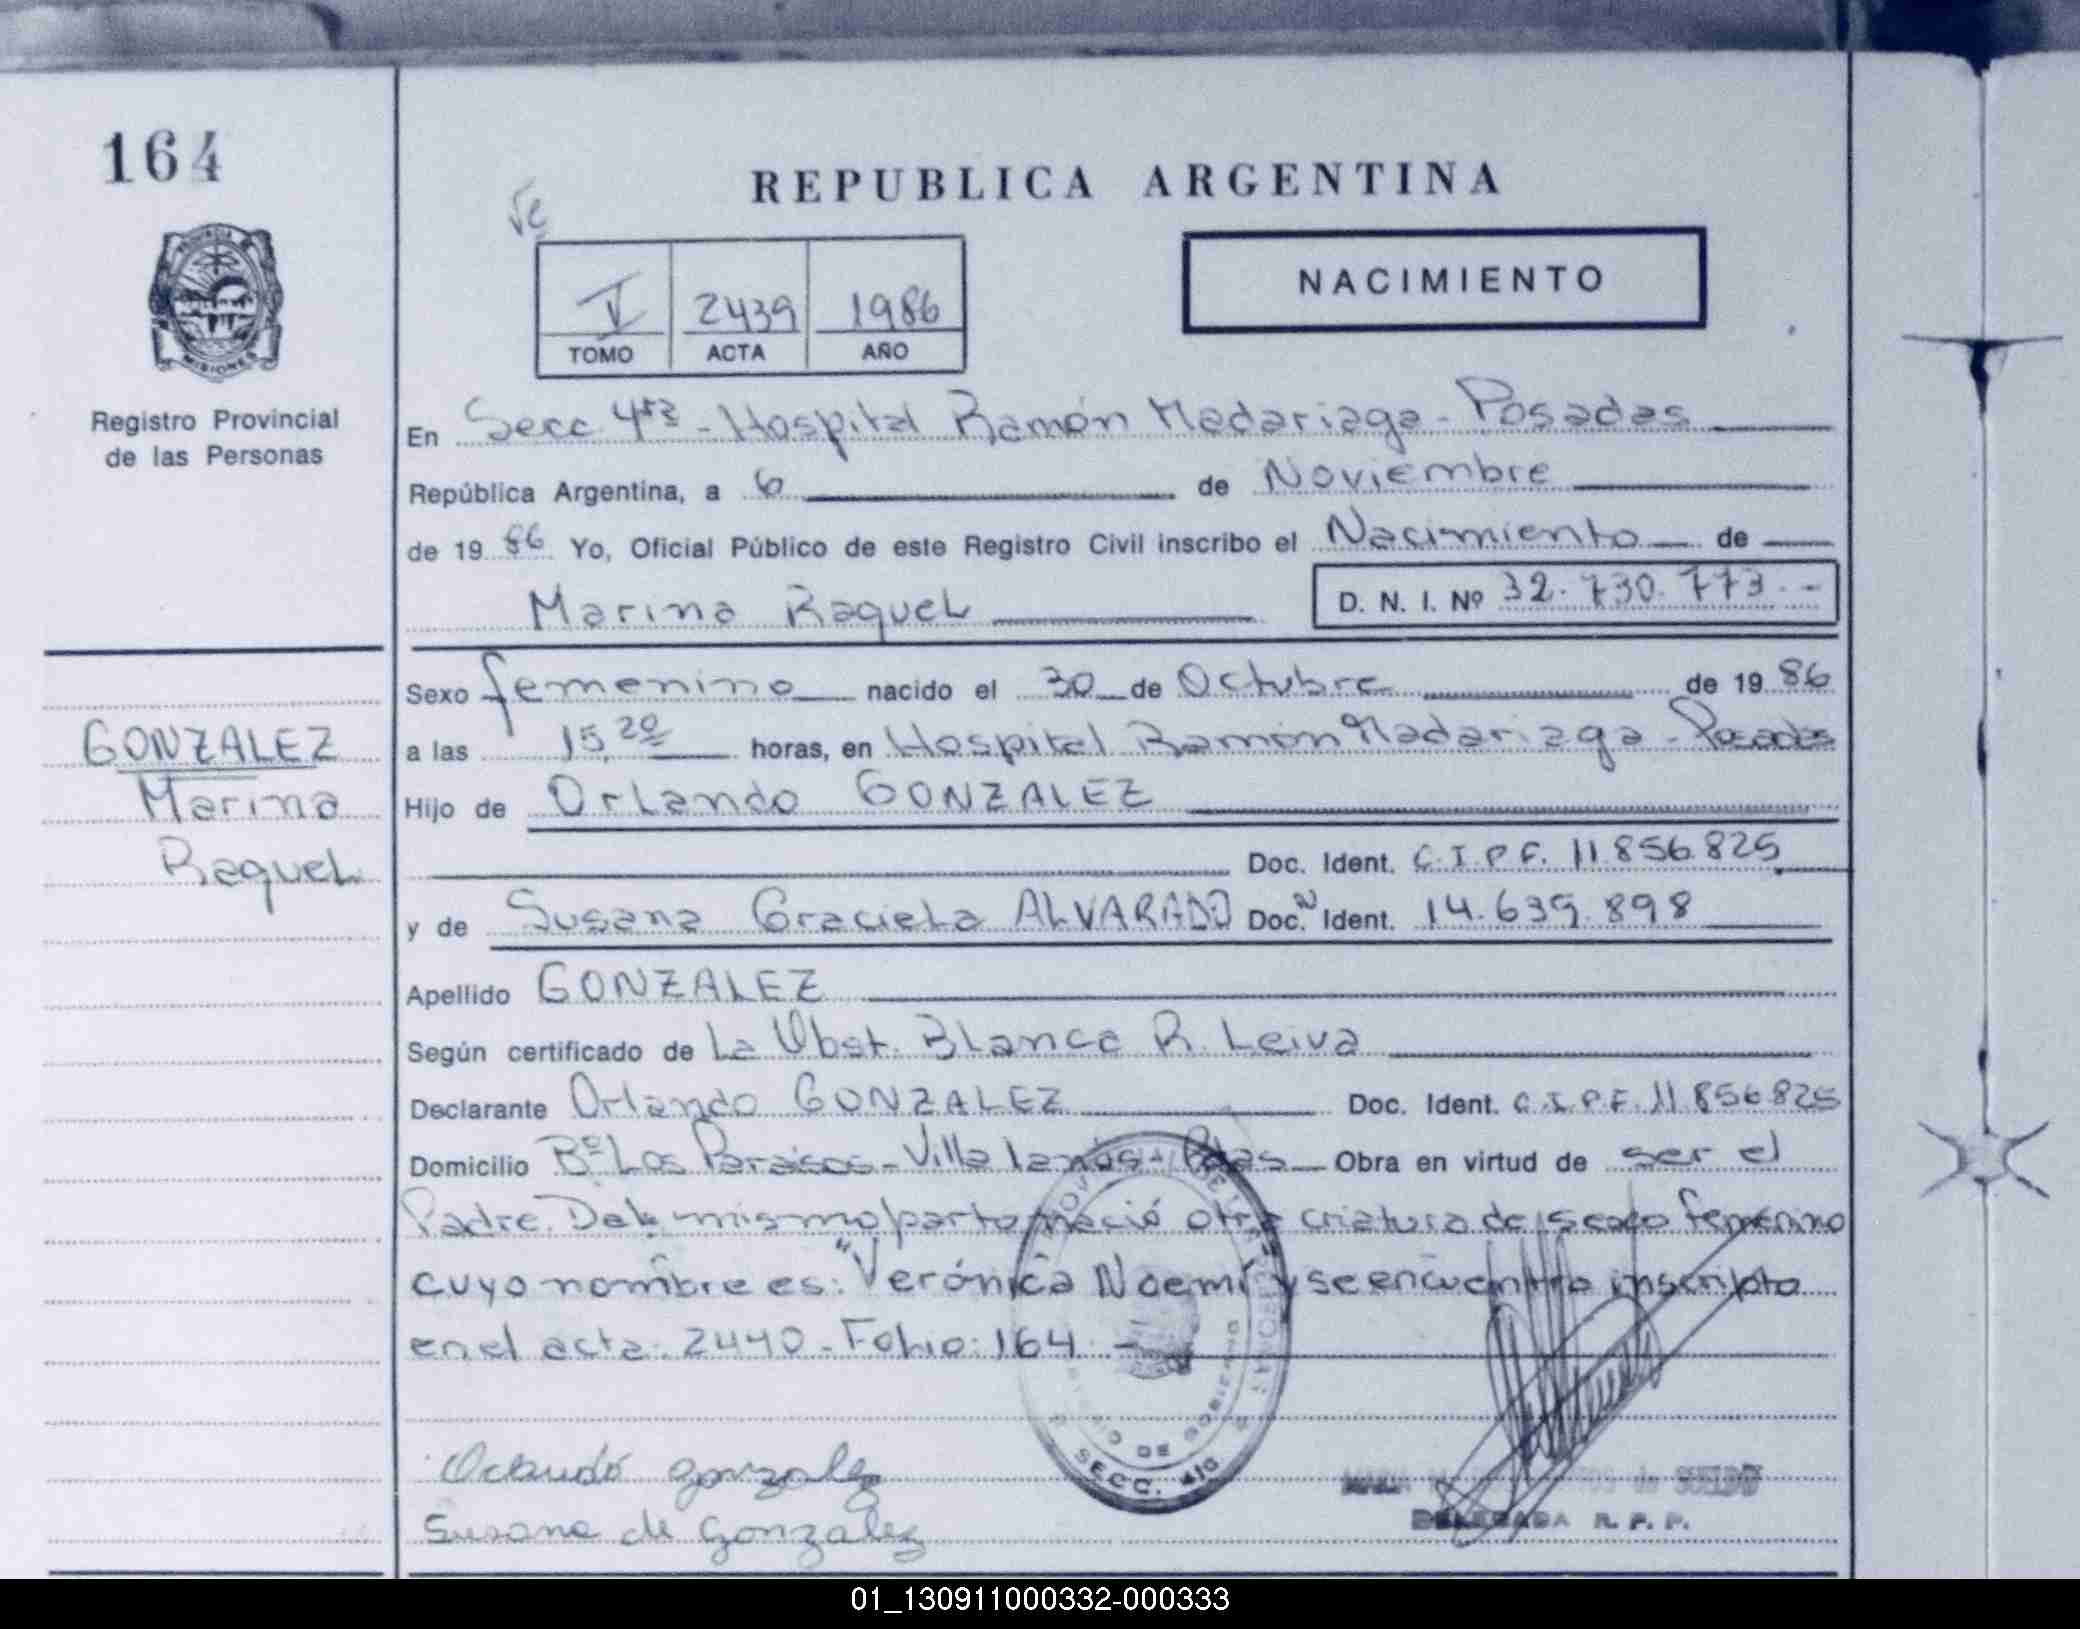 164
REPUBLICA ARGENTINA
PROVINCIA DE MISIONES
Registro Provincial
de las Personas
V 2439 1986
TOMO ACTA AÑO
NACIMIENTO
En Secc 4ta - Hospital Ramón Madariaga - Posadas
República Argentina, a 6 de Noviembre
de 1986 Yo, Oficial Público de este Registro Civil inscribo el Nacimiento de
Marina Raquel D. N. I. Nº 32.730.773.-
GONZALEZ
Marina
Raquel
Sexo femenino nacido el 30 de Octubre de 1986
a las 15,20 horas, en Hospital Ramón Madariaga - Posadas
Hijo de Orlando GONZALEZ
Doc. Ident. C.I.P.F. 11.856.825
y de Susana Graciela ALVARADO Doc. Ident. 14.639.898
Apellido GONZALEZ
Según certificado de La Obst. Blanca R. Leiva
Declarante Orlando GONZALEZ Doc. Ident. C.I.P.F. 11.856.825
Domicilio Bº Los Paraisos - Villa Lanús - Pdas Obra en virtud de ser el
Padre. Del mismo parto nació otra criatura de sexo femenino
cuyo nombre es: "Verónica Noemí y se encuentra inscripta
en el acta: 2440 - Folio: 164 -
SECC. 4ta
gonzalez
Susana de gonzalez
DELEGADA R. P. P.
01_130911000332-000333